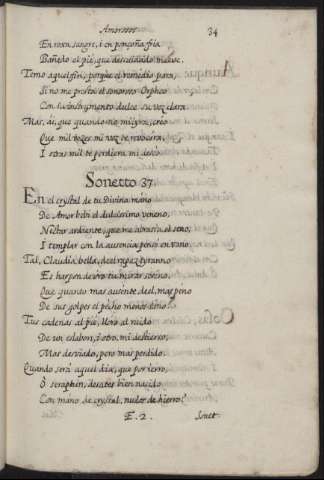 Amorosos 34
En roxa sangre, i en ponçoña fria
Bañado el pie, que descuidando mueve.
Temo aquel fin, porque el remedio para,
Si no me presta el sonoroso Orpheo
Con su instrumento dulce su voz clara.
Mas, ai, que quando no mi lyra, creo
Que mil vezes mi voz te
I otras mil te perdiera mi deseo
Sonetto 37.
En el crystal de tu Divina mano
De Amor bebi el dulcissimo veneno,
Nectar ardiente, que me abrasa el seno,
I templar con la ausencia pensé en vano.
Tal, Claudia bella, de el rapaz tyranno
Es harpon de oro tu mirar sereno,
Que quanto mas ausente de el, mas peno
De sus golpes el pecho menos sano.
Tus cadenas al pie, lloro al ruido
De un eslabon, i otro, mi destierro,
Mas desviado, pero mas perdido.
Quando será aquel dia, que por ierro,
O seraphin, desates bien nacido
Con mano de crystal, nudos de hierro?
E. 2. Sonet